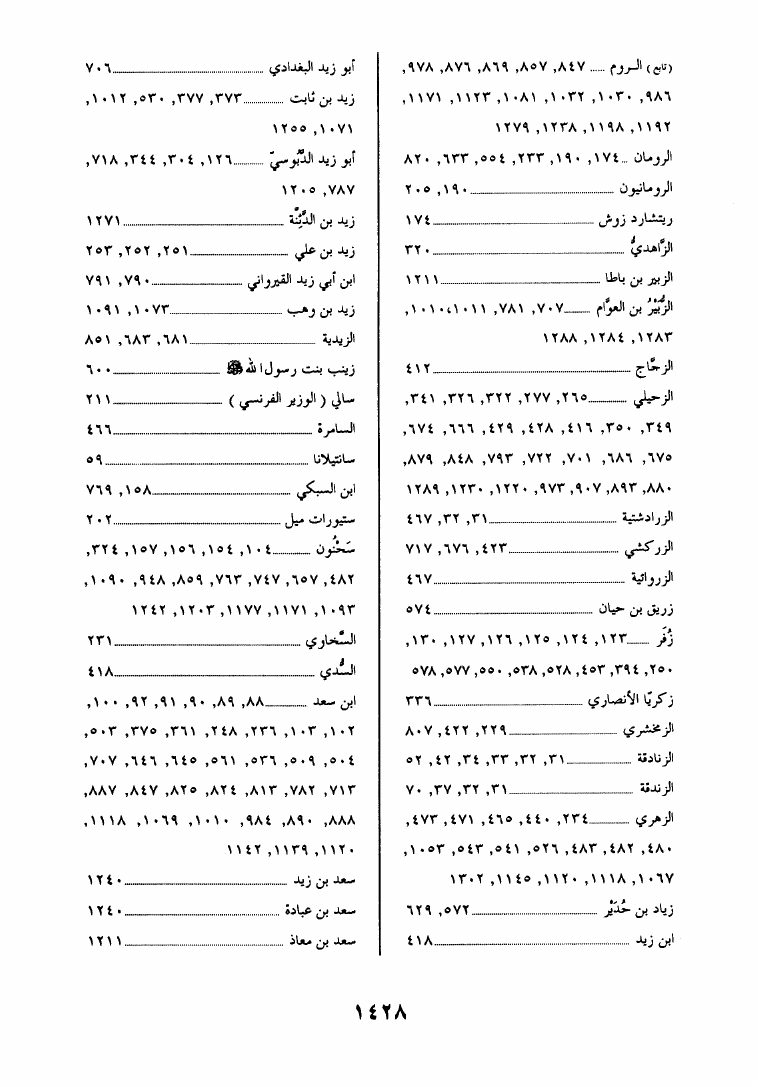 (تابع) الـروم ..... ٨٤٧, ٨٥٧, ٨٦٩, ٨٧٦, ٩٧٨,
٩٨٦, ١٠٣٠, ١٠٣٢, ١٠٨١, ١١٢٣, ١١٧١,
١١٩٢, ١١٩٨, ١٢٣٨, ١٢٧٩
الرومان ..١٧٤, ١٩٠, ٢٣٣, ٥٥٤, ٦٣٣, ٨٢٠
الرومانيون ..........١٩٠, ٢٠٥
ريتشارد زوش ..........١٧٤
الزَّاهديُّ ..........٣٢٠
الزبير بن باطا ..........١٢١١
الزُّبَيْرُ بن العوَّام ..........٧٠٧, ٧٨١, ١٠١٠،١٠١١,
١٢٨٣, ١٢٨٤, ١٢٨٨
الزجَّاج ..........٤١٢
الزحيلي ..........٢٦٥, ٢٧٧, ٣٢٢, ٣٢٦, ٣٤١,
٣٤٩, ٣٥٠, ٤١٦, ٤٢٨, ٤٢٩, ٦٦٦, ٦٧٤,
٦٧٥, ٦٨٦, ٧٠١, ٧٢٢, ٧٩٣, ٨٤٨, ٨٧٩,
٨٨٠, ٨٩٣, ٩٠٧, ٩٧٣, ١٢٢٠, ١٢٣٠, ١٢٨٩
الزرادشتية ..........٣١, ٣٢, ٤٦٧
الزركشي ..........٤٢٣, ٦٧٦, ٧١٧
الزروائية ..........٤٦٧
زريق بن حيان ..........٥٧٤
زُفَر ..........١٢٣, ١٢٤, ١٢٥, ١٢٦, ١٢٧, ١٣٠,
٢٥٠, ٣٩٤, ٤٥٣, ٥٢٨, ٥٣٨, ٥٥٠, ٥٧٧, ٥٧٨
زكريّا الأنصاري ..........٣٣٦
الزمخشري ..........٢٢٩, ٤٢٢, ٨٠٧
الزنادقة ..........٣١, ٣٢, ٣٣, ٣٤, ٤٢, ٥٢
الزندقة ..........٣١, ٣٢, ٣٧, ٧٠
الزهري ..........٢٣٤, ٤٤٠, ٤٦٥, ٤٧١, ٤٧٣,
٤٨٠, ٤٨٢, ٤٨٣, ٥٢٦, ٥٤١, ٥٤٣, ١٠٥٣,
١٠٦٧, ١١١٨, ١١٢٠, ١١٤٥, ١٣٠٢
زياد بن حُدَيْر ..........٥٧٢, ٦٢٩
ابن زيد ..........٤١٨
أبو زيد البغدادي ..........٧٠٦
زيد بن ثابت ..........٣٧٣, ٣٧٧, ٥٣٠, ١٠١٢,
١٠٧١, ١٢٥٥
أبو زيد الدَّبُوسيّ ..........١٢٦, ٣٠٤, ٣٤٤, ٧١٨,
٧٨٧, ١٢٠٥
زيد بن الدَّثِنَّة ..........١٢٧١
زيد بن علي ..........٢٥١, ٢٥٢, ٢٥٣
ابن أبي زيد القيرواني ..........٧٩٠, ٧٩١
زيد بن وهب ..........١٠٧٣, ١٠٩١
الزيدية ..........٦٨١, ٦٨٣, ٨٥١
زينب بنت رسول الله ﷺ ..........٦٠٠
سالي ( الوزير الفرنسي ) ..........٢١١
السامرة ..........٤٦٦
سانتيلانا ..........٥٩
ابن السبكي ..........١٥٨, ٧٦٩
ستيورات ميل ..........٢٠٢
سَحْنُون ..........١٠٤, ١٥٤, ١٥٦, ١٥٧, ٣٢٤,
٤٨٢, ٦٥٧, ٧٤٧, ٧٦٣, ٨٥٩, ٩٤٨, ١٠٩٠,
١٠٩٣, ١١٧١, ١١٧٧, ١٢٠٣, ١٢٤٢
السَّخاوي ..........٢٣١
السُّدي ..........٤١٨
ابن سعد ..........٨٨, ٨٩, ٩٠, ٩١, ٩٢, ١٠٠,
١٠٢, ١٠٣, ٢٣٦, ٢٤٨, ٣٦١, ٣٧٥, ٥٠٣,
٥٠٤, ٥٠٩, ٥٣٦, ٥٦١, ٦٤٥, ٦٤٦, ٧٠٧,
٧١٣, ٧٨٢, ٨١٣, ٨٢٤, ٨٢٥, ٨٤٧, ٨٨٧,
٨٨٨, ٨٩٠, ٩٨٤, ١٠١٠, ١٠٦٩, ١١١٨,
١١٢٠, ١١٣٩, ١١٤٢
سعد بن زيد ..........١٢٤٠
سعد بن عبادة ..........١٢٤٠
سعد بن معاذ ..........١٢١١
١٤٢٨